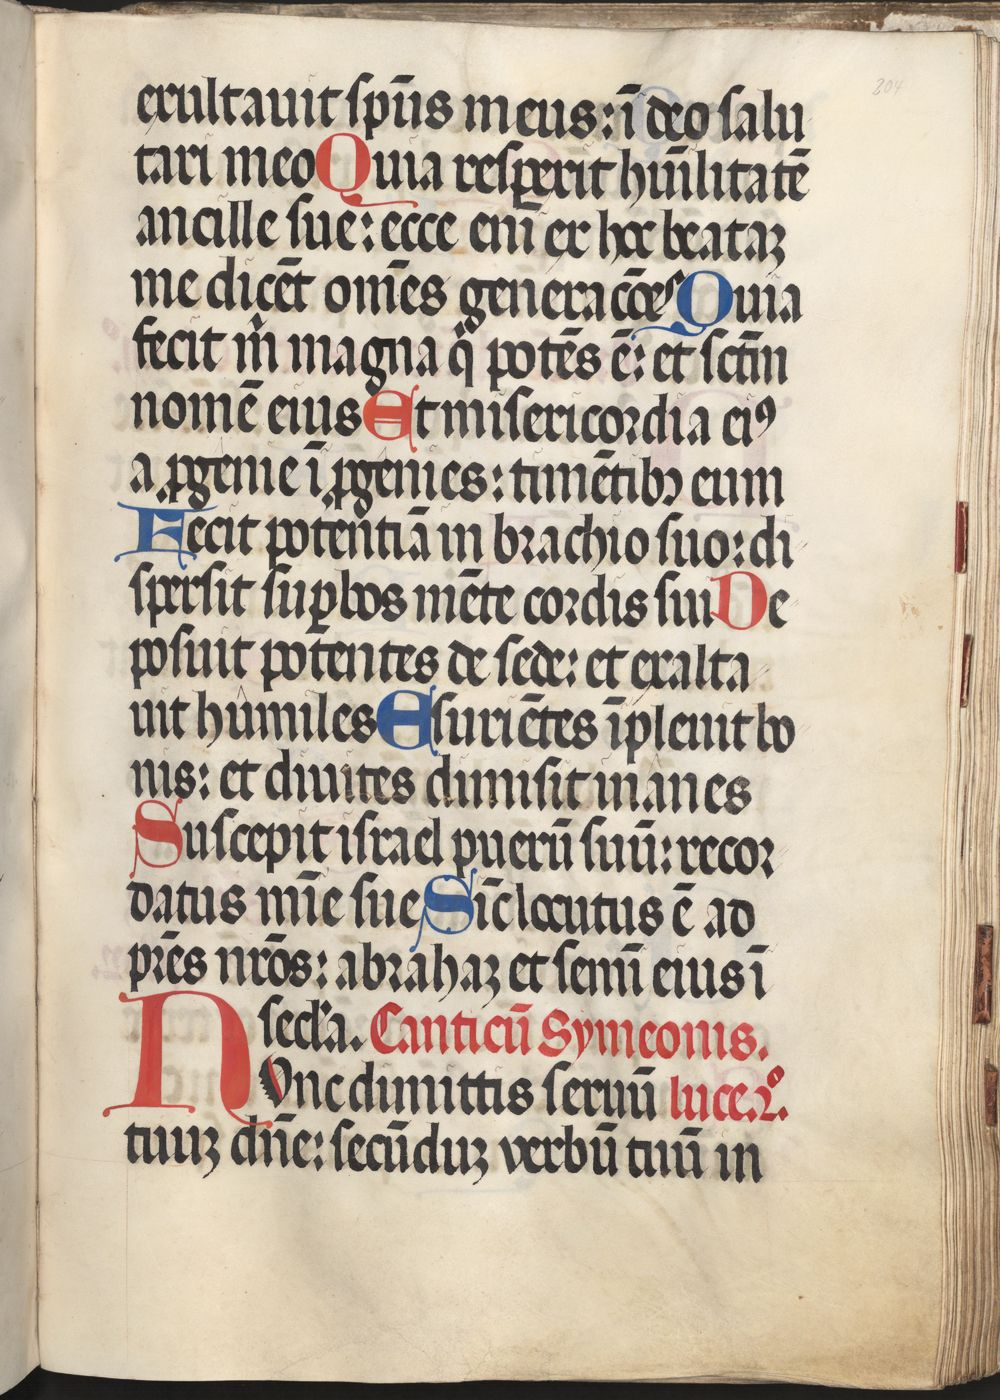 exultauit sp̄us meus: ī deo salu
tari meo Quia respexit hūilitatē
ancille sue: ecce enī ex hoc beataꝫ
me dicēt om̄es generac̄oes Quia
fecit m̄ magna q̄ potēs ē: et sctm̄
nomē eius Et misericordia eiꝰ
a ꝓgenie ī ꝓgenies: timētibꝫ eum
Fecit potentiā in brachio suo: di
spersit suꝑbos mēte cordis sui De
posuit potentes de sede: et exalta
uit humiles Esuriētes īpleuit bo
nis: et diuites dimisit inanes
Suscepit israel puerū suū: recor
datus mīe sue Sic̄ locutus ē ad
pr̄es nr̄os: abrahaꝫ et semī eius ī
secl̄a. Canticū Symeonis.
Nunc dimittis seruū luce.2°.
tuuꝫ dn̄e: secūduꝫ verbū tuū in
204